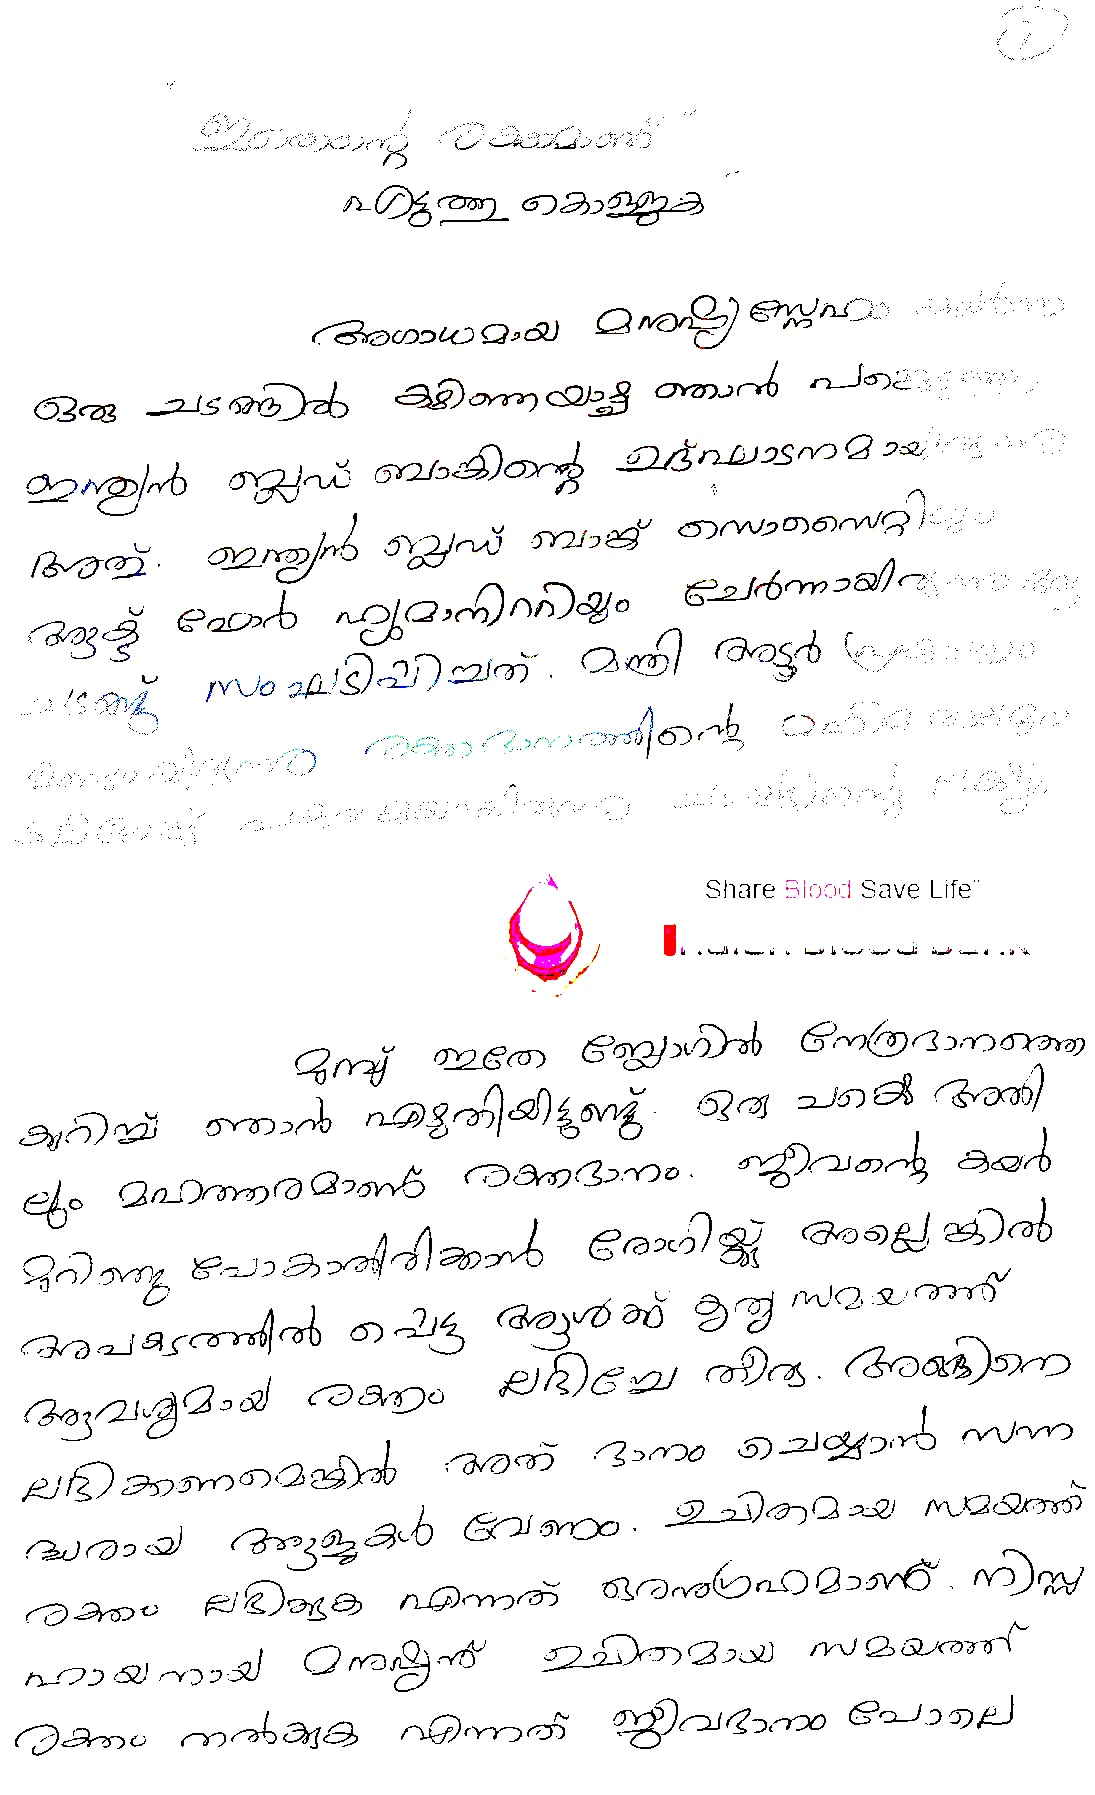 1
"ഇതാന്റെ രക്തമാണ്"
എടുത്തു കൊള്ളുക"
അഗാധമായ മനുഷ്യ സ്നേഹം
ഒരു ചടങ്ങിൽ കഴിഞ്ഞയാഴ്ച ഞാൻ പങ്കെടുത്തു
ഇന്ത്യൻ ബ്ലഡ് ബാങ്കിന്റെ ഉദ്ഘാടനമായിരുന്നു
അത്. ഇന്ത്യൻ ബ്ലഡ് ബാങ്ക് സൊസൈറ്റിയും
ആക്ട് ഫോർ ഹ്യുമാനിററിയും ചേർന്നായിരുന്നു ആ
ചടങ്ങ് സംഘടിപ്പിച്ചത്. മന്ത്രി അടൂർ പ്രകാശും
രക്തദാനത്തിന്റെ
Share Blood Save Life"
Indian Blood Bank
മുമ്പ് ഇതേ ബ്ലോഗിൽ നേത്രദാനത്തെ
കുറിച്ച് ഞാൻ എഴുതിയിട്ടുണ്ട്. ഒരു പക്ഷെ അതി
ലും മഹത്തരമാണ് രക്തദാനം. ജീവന്റെ കയർ
മുറിഞ്ഞു പോകാതിരിക്കാൻ രോഗിയ്ക്ക് അല്ലെങ്കിൽ
അപകടത്തിൽ പെട്ട ആൾക്ക് കൃത്യ സമയത്ത്
ആവശ്യമായ രക്തം ലഭിച്ചേ തീരൂ. അങ്ങിനെ
ലഭിക്കണമെങ്കിൽ അത് ദാനം ചെയ്യാൻ സന്ന
ദ്ധരായ ആളുകൾ വേണം. ഉചിതമായ സമയത്ത്
രക്തം ലഭിക്കുക എന്നത് ഒരനുഗ്രഹമാണ്. നിസ്സ
ഹായനായ മനുഷ്യന് ഉചിതമായ സമയത്ത്
രക്തം നൽകുക എന്നത് ജീവദാനം പോലെ